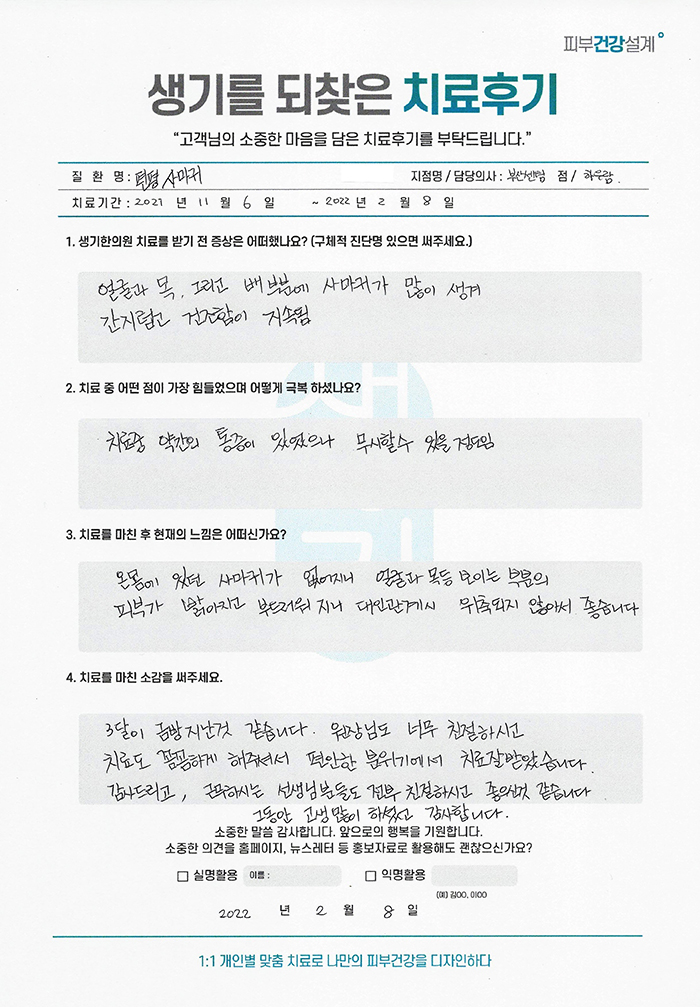 피부건강설계
생기를 되찾은 치료후기
“고객님의 소중한 마음을 담은 치료후기를 부탁드립니다.”
질 환 명 : 편평 사마귀 지점명 / 담당의사 : 부산센텀 점 / 하우람.
치료기간 : 2021 년 11 월 6 일 ~ 2022 년 2 월 8 일
1. 생기한의원 치료를 받기 전 증상은 어떠했나요? (구체적 진단명 있으면 써주세요.)
얼굴과 목, 그리고 배 부분에 사마귀가 많이 생겨
간지럽고 건조함이 지속됨
2. 치료 중 어떤 점이 가장 힘들었으며 어떻게 극복 하셨나요?
치료중 약간의 통증이 있었으나 무시할수 있을 정도임
생기
3. 치료를 마친 후 현재의 느낌은 어떠신가요?
온몸에 있던 사마귀가 없어지니 얼굴과 목등 보이는 부분의
피부가 밝아지고 부드러워 지니 대인관계시 위축되지 않아서 좋습니다
4. 치료를 마친 소감을 써주세요.
3달이 금방 지난것 같습니다. 원장님도 너무 친절하시고
치료도 꼼꼼하게 해주셔서 편안한 분위기에서 치료잘받았습니다.
감사드리고, 근무하시는 선생님분들도 전부 친절하시고 좋으신것 같습니다
그동안 고생많이 하셨고 감사합니다.
소중한 말씀 감사합니다. 앞으로의 행복을 기원합니다.
소중한 의견을 홈페이지, 뉴스레터 등 홍보자료로 활용해도 괜찮으신가요?
□ 실명활용 이름 : □ 익명활용
(예) 김OO, 이OO
2022 년 2 월 8 일
1:1 개인별 맞춤 치료로 나만의 피부건강을 디자인하다